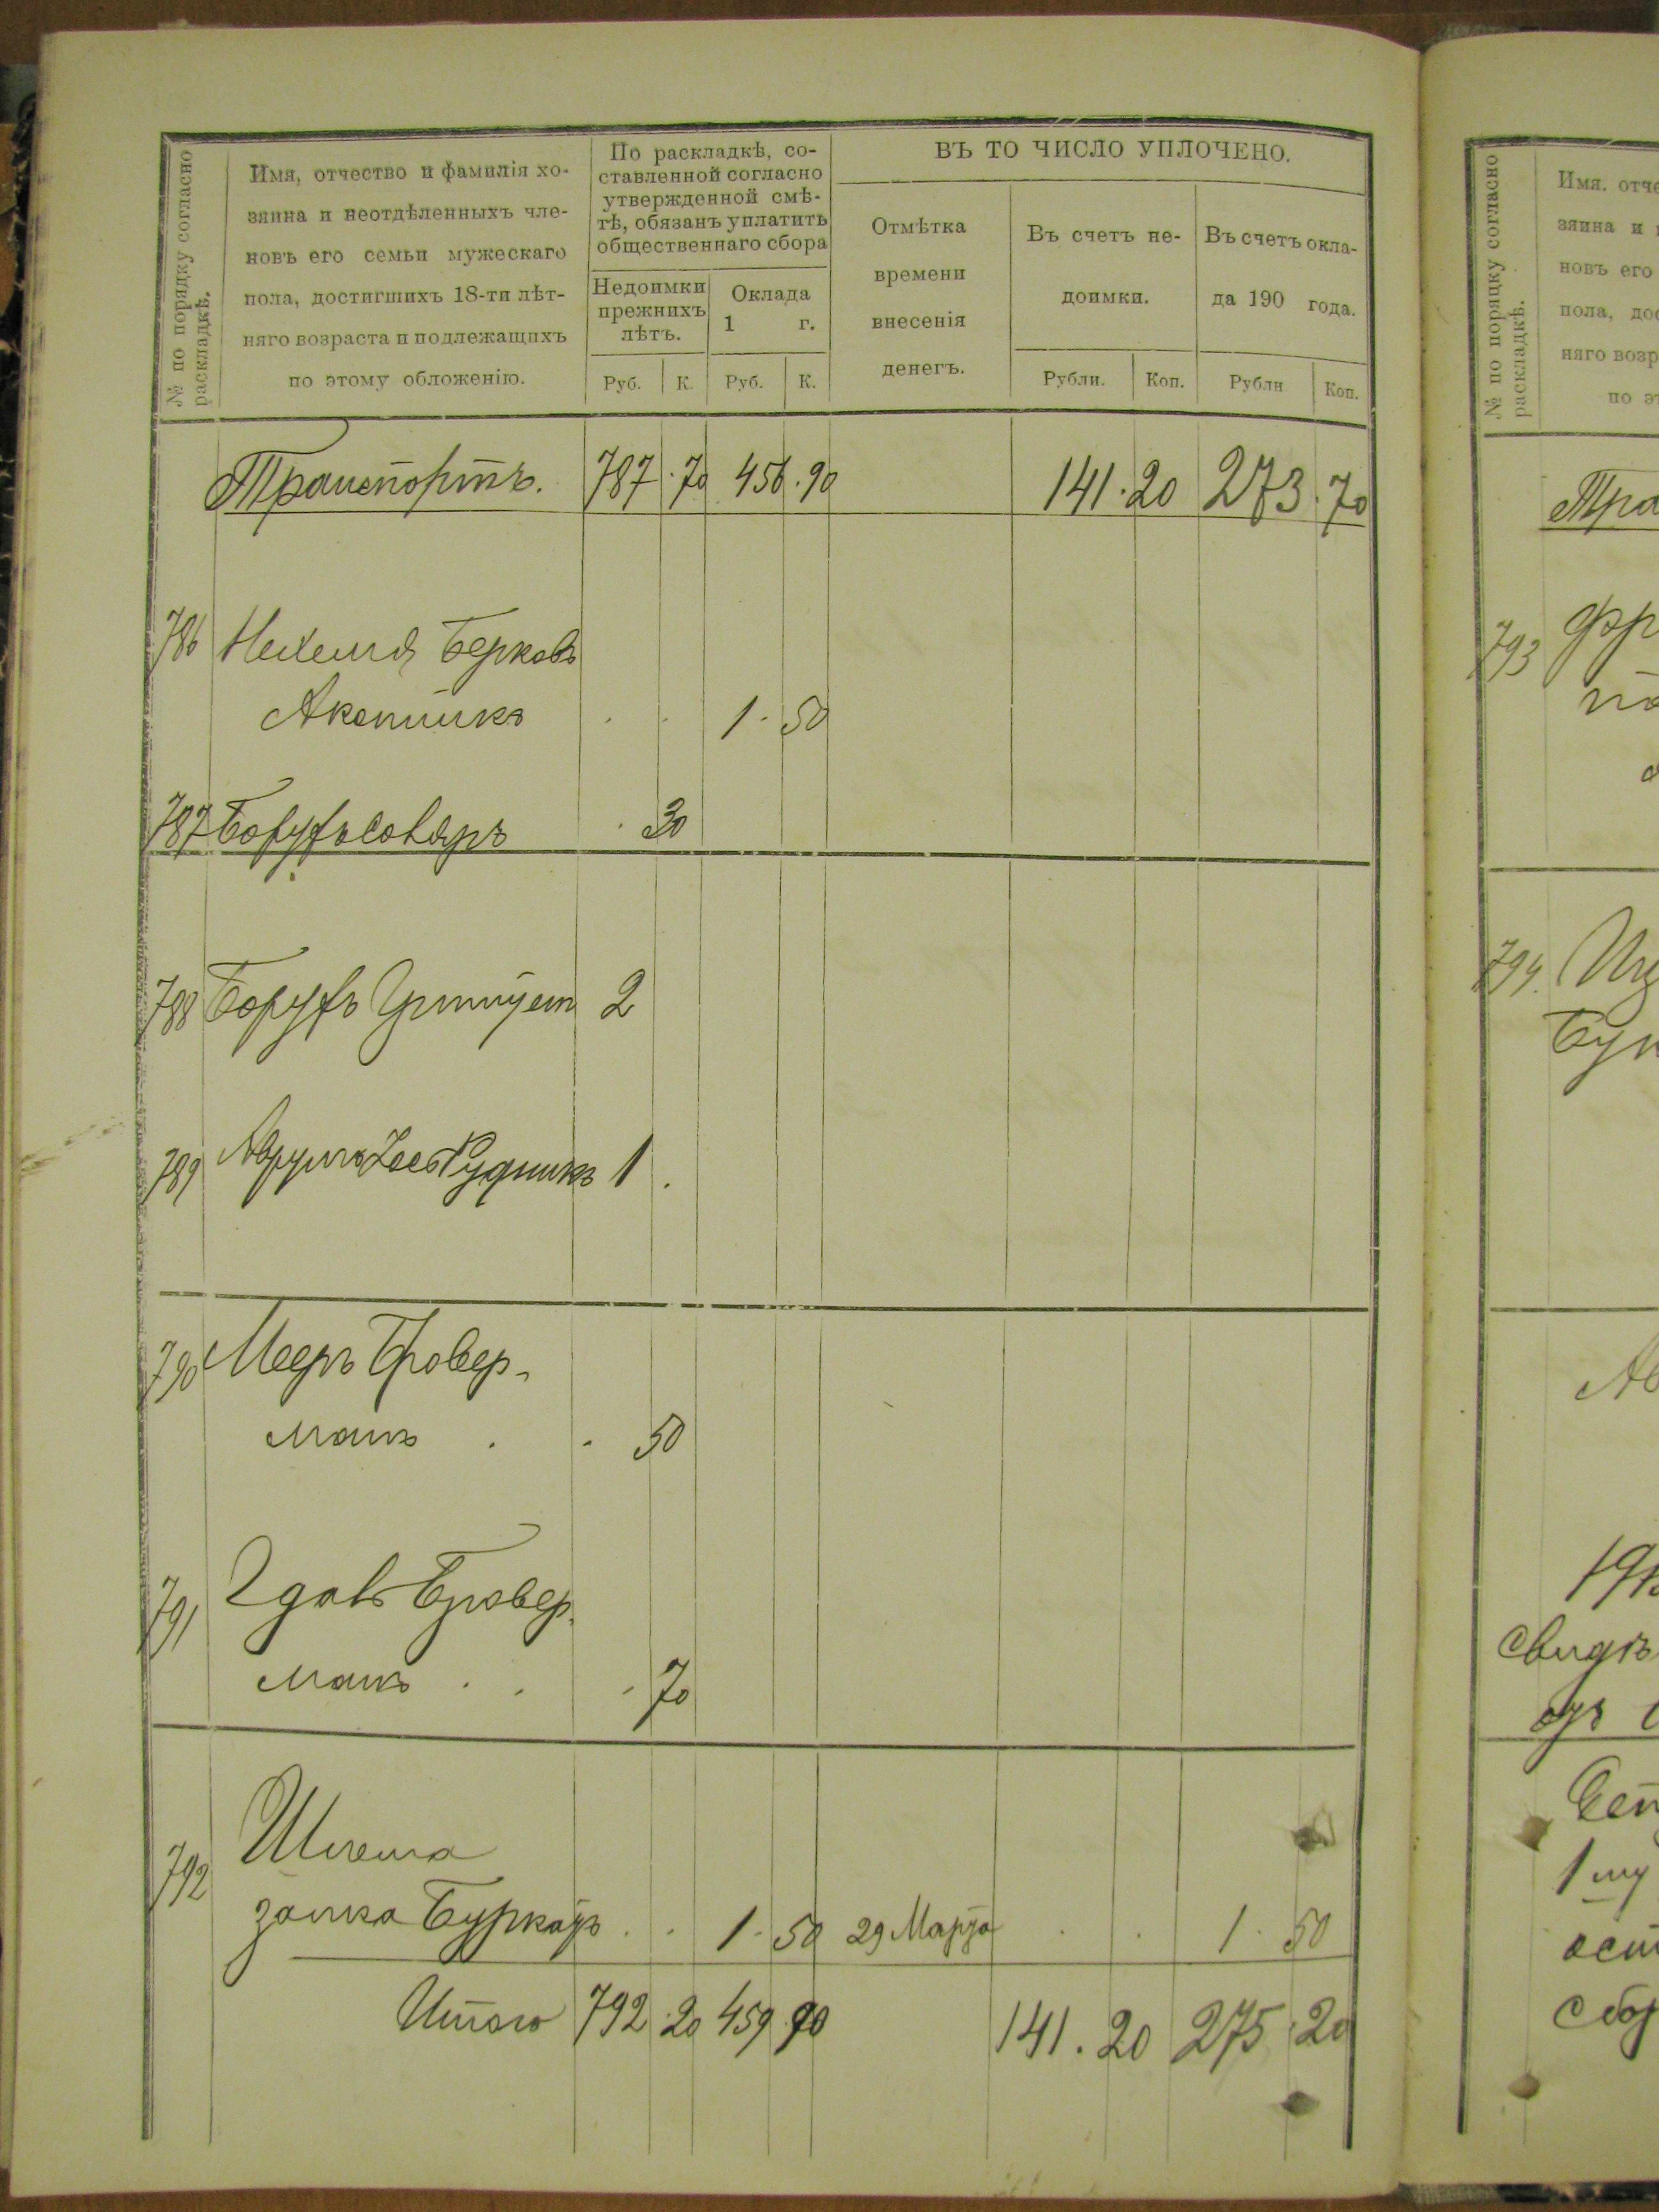 № по порядку согласно раскладкѣ.
Имя, отчество и фамилія хо-
зяина и неотдѣленныхъ чле-
новъ его семьи мужескаго
пола, достигшихъ 18-ти лѣт-
няго возраста и подлежащихъ
по этому обложенію.
По раскладкѣ, со-
ставленной согласно
утвержденной смѣ-
тѣ, обязанъ уплатить
общественнаго сбора
Недоимки прежнихъ лѣтъ.
Оклада 1 г.
Руб. К. Руб. К.
ВЪ ТО ЧИСЛО УПЛОЧЕНО.
Отмѣтка
времени
внесенія
денегъ.
Въ счетъ не-
доимки.
Рубли. Коп.
Въ счетъ окла-
да 190 года.
Рубли Коп.
Транспортъ. 787.70 456.90 141.20 273.70
786 Нехемія Берковъ
1.50
787 Борухъ . 30
788 Борухъ 2
789 Аврумъ Рудникъ 1.
790 Мееръ Бровер-
манъ . . 50
791 Бровер-
манъ . . . 70
792 Шлема
залка Буркарь . . 1.50 29 Марта . . 1.50
Итого 792.20 459.90 141.20 275.20
№ по порядку согласно раскладкѣ.
Имя, отче
зяина и
новъ его
пола, дос
няго возр
по эт
Тра
793
794.